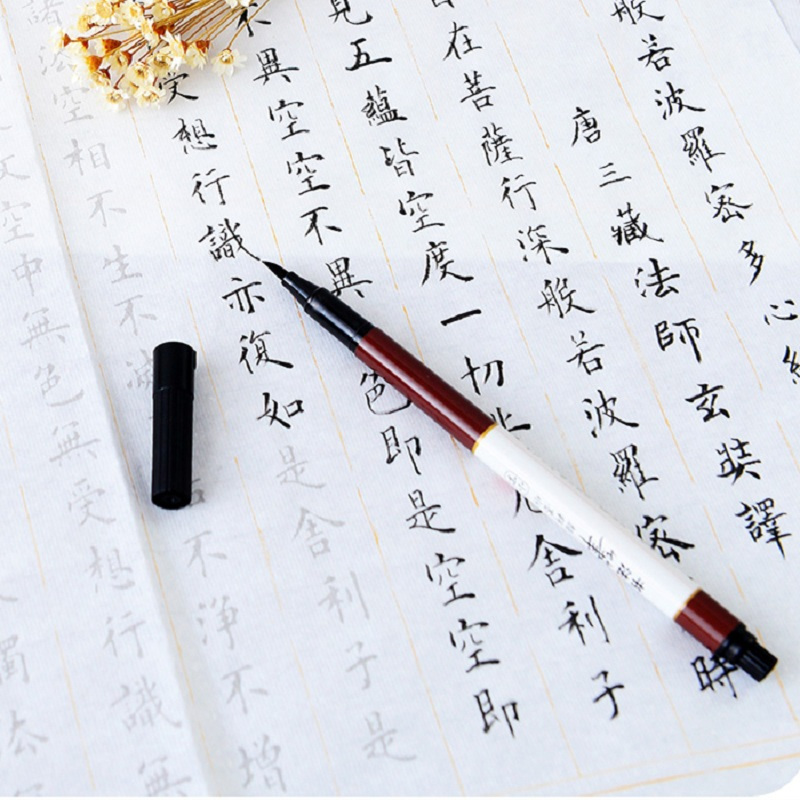 般若波羅密多心
唐三藏法師玄奘譯
在菩薩行深般若波羅密時
見五蘊皆空度一切厄舍利子
不異空空不異色即是空空即
受想行識亦復如是舍利子是
諸法空相不生不滅不淨不增
空中無色無受想行識無
觸